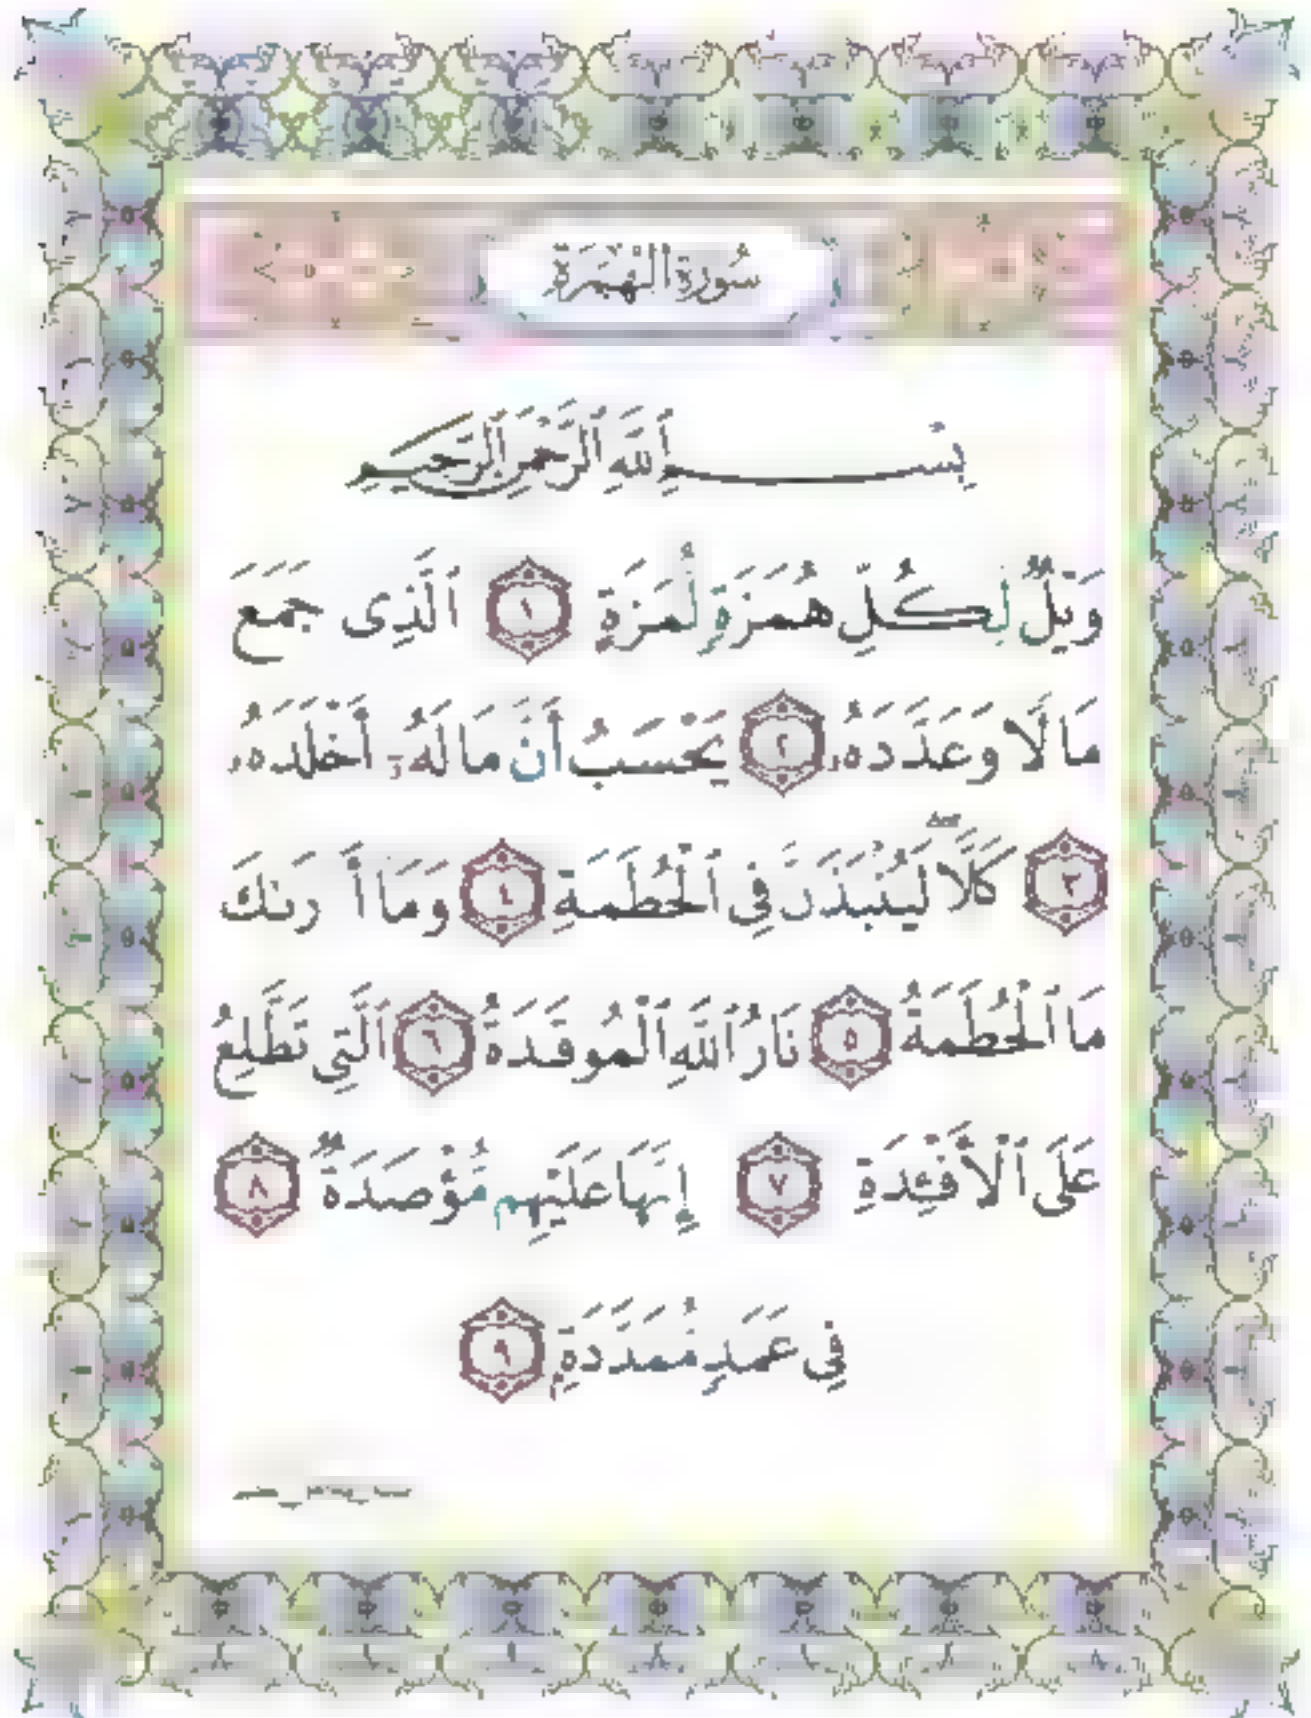 سُورَةُ الْهُمَزَةِ
بِسْمِ ٱللَّهِ ٱلرَّحْمَٰنِ ٱلرَّحِيمِ
وَيْلٌ لِّكُلِّ هُمَزَةٍ لُّمَزَةٍ ١ ٱلَّذِى جَمَعَ
مَالًا وَعَدَّدَهُۥ ٢ يَحْسَبُ أَنَّ مَالَهُۥٓ أَخْلَدَهُۥ
٣ كَلَّا لَيُنۢبَذَنَّ فِى ٱلْحُطَمَةِ ٤ وَمَا أَدْرَىٰكَ
مَا ٱلْحُطَمَةُ ٥ نَارُ ٱللَّهِ ٱلْمُوقَدَةُ ٦ ٱلَّتِى تَطَّلِعُ
عَلَى ٱلْأَفْـِٔدَةِ ٧ إِنَّهَا عَلَيْهِم مُّؤْصَدَةٌ ٨
فِى عَمَدٍ مُّمَدَّدَةٍۭ ٩